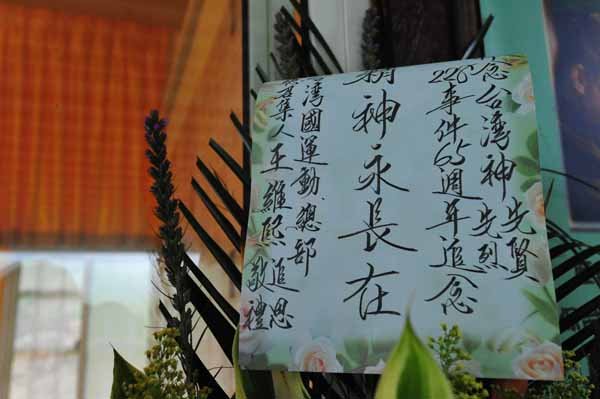 念台灣神先賢
先烈
228事件65週年追念
精神永長在
灣國運動總部追思
召集人王維熙敬禮